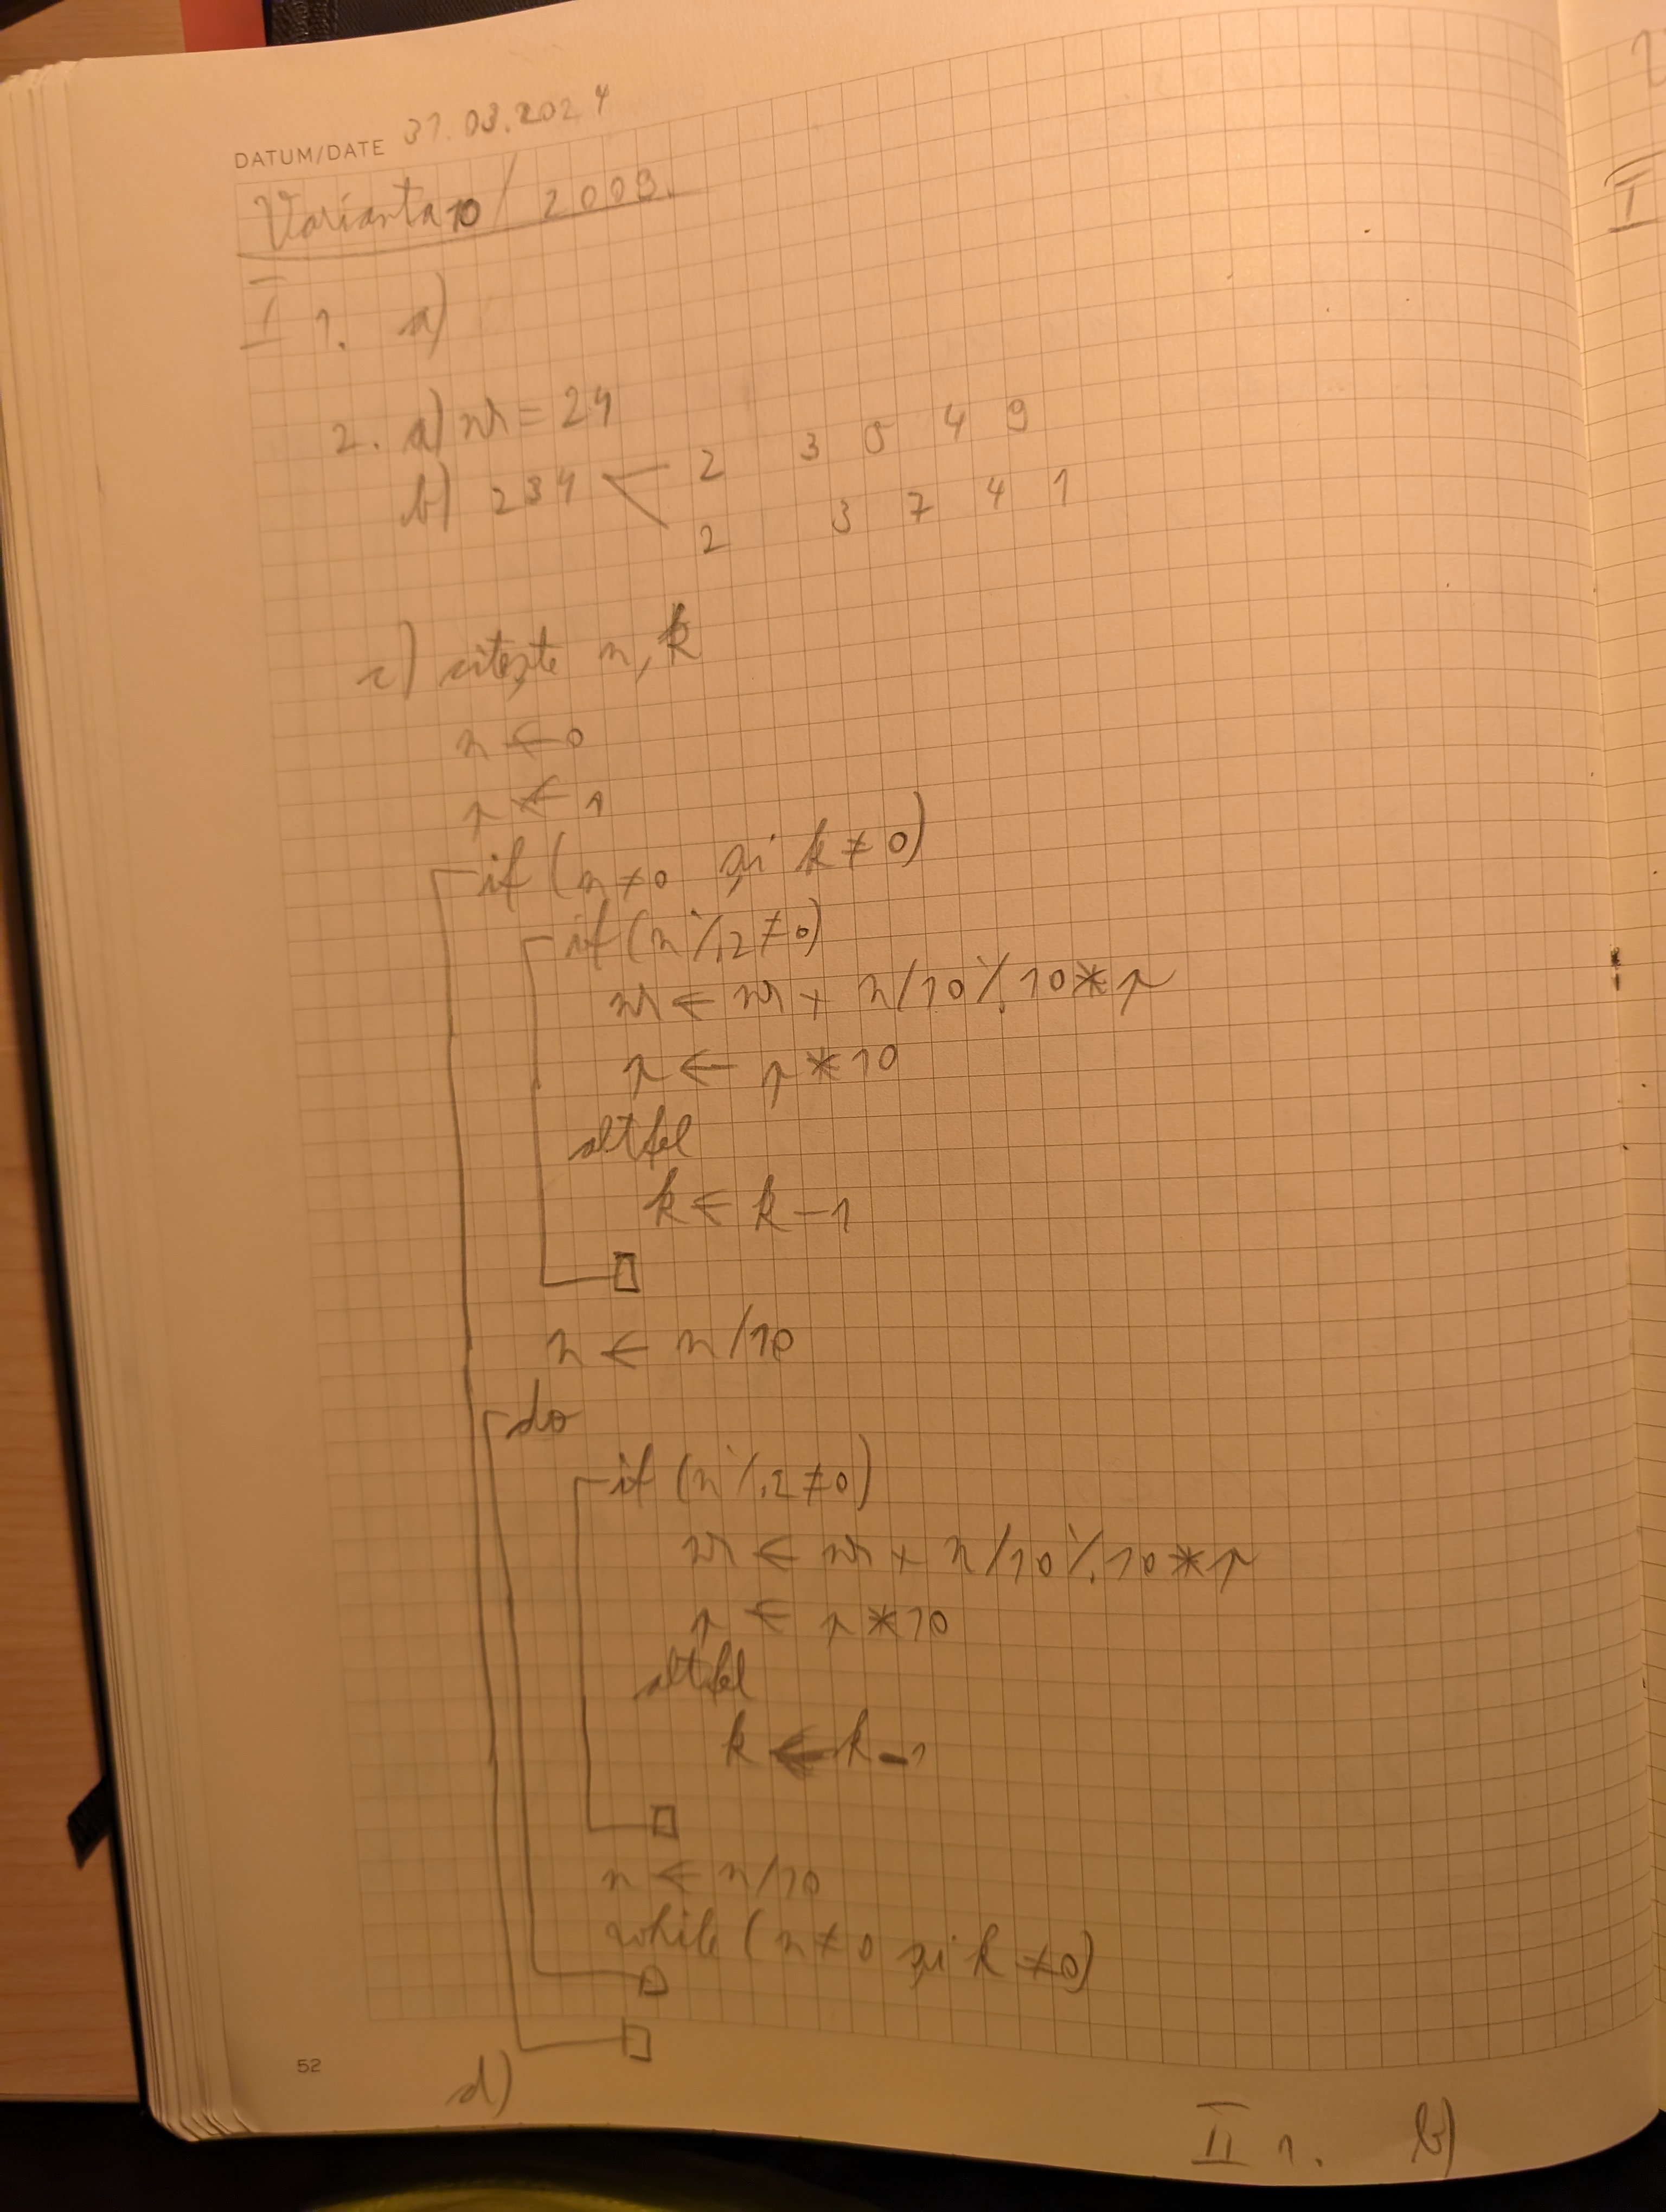 DATUM/DATE 31.03.2024
Varianta 10 / 2009.
I 1. a)
2. a) nr = 24
b) 234 < 2 3 5 4 9
2 3 7 4 1
c) citește n, k
n ← 0
p ← 1
if (n ≠ 0 și k ≠ 0)
if (n % 2 ≠ 0)
nr ← nr + n/10 % 10 * p
p ← p * 10
altfel
k ← k - 1
n ← n/10
do
if (n % 2 ≠ 0)
nr ← nr + n/10 % 10 * p
p ← p * 10
altfel
k ← k - 1
n ← n/10
while (n ≠ 0 și k ≠ 0)
52
d)
II 1. b)
I